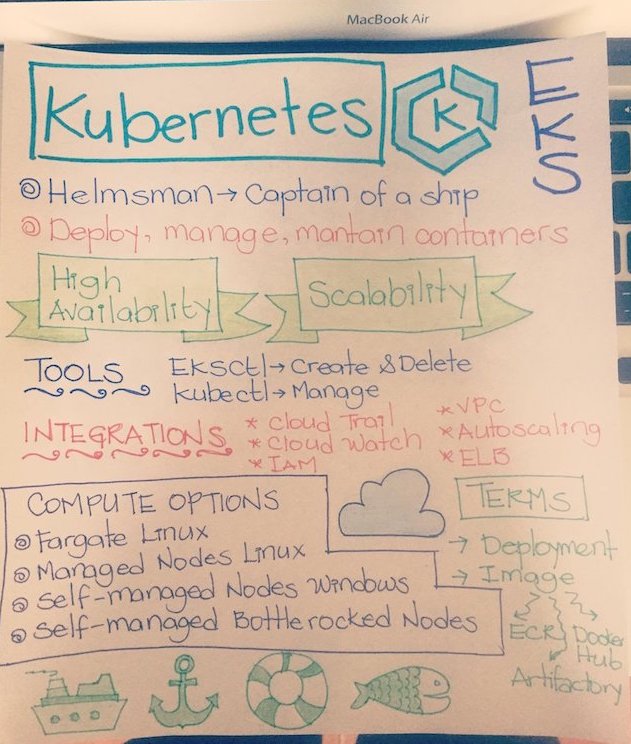 MacBook Air
Kubernetes
K
EKS
Helmsman → Captain of a ship
Deploy, manage, mantain containers
High
Availability
Scalability
TOOLS
EKSctl → Create & Delete
kubectl → Manage
INTEGRATIONS
* Cloud Trail
* Cloud Watch
* IAM
* VPC
* Autoscaling
* ELB
COMPUTE OPTIONS
Fargate Linux
Managed Nodes Linux
Self-managed Nodes Windows
Self-managed Bottlerocked Nodes
TERMS
→ Deployment
→ Image
ECR
Docker
Hub
Artifactory